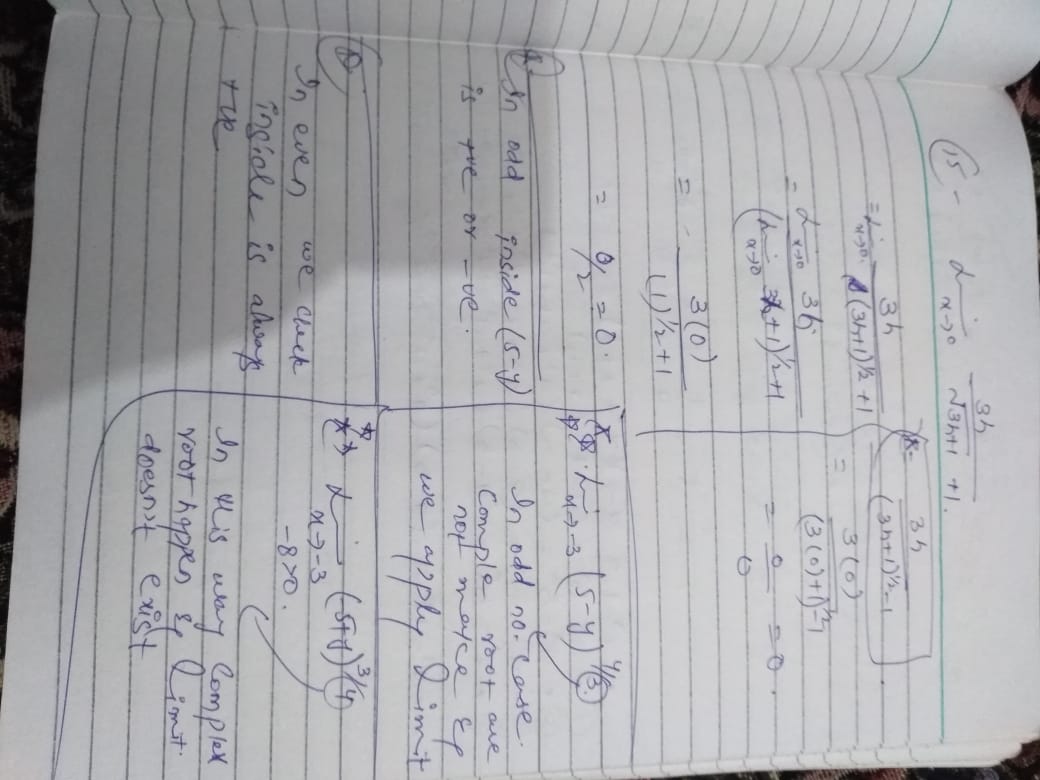 15- Lim x→0 3h / √3h+1 + 1.
= Lim x→0 3h / (3h+1)^1/2 + 1
= Lim x→0 3h / (Lim x→0 3h+1)^1/2 + 1
= 3(0) / (1)^1/2 + 1
= 0/2 = 0.
3h / (3h+1)^1/2 - 1
= 3(0) / (3(0)+1)^1/2 - 1
= 0/0 = 0.
In odd inside (5-y)
is +ve or -ve.
Lim x→-3 (5-y)^4/3.
In odd no. case.
Comple root are
not make &
we apply limit
In even we check
inside is always
+ve
Lim x→-3 (-5+y)^3/4
-8>0.
In this way Complex
root happen & limit
doesn't exist